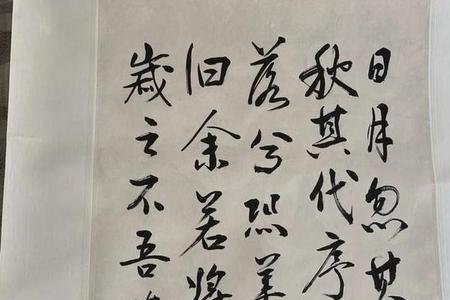 日月忽其
秋其代序
落兮恐美
旧余若将
歲之不吾